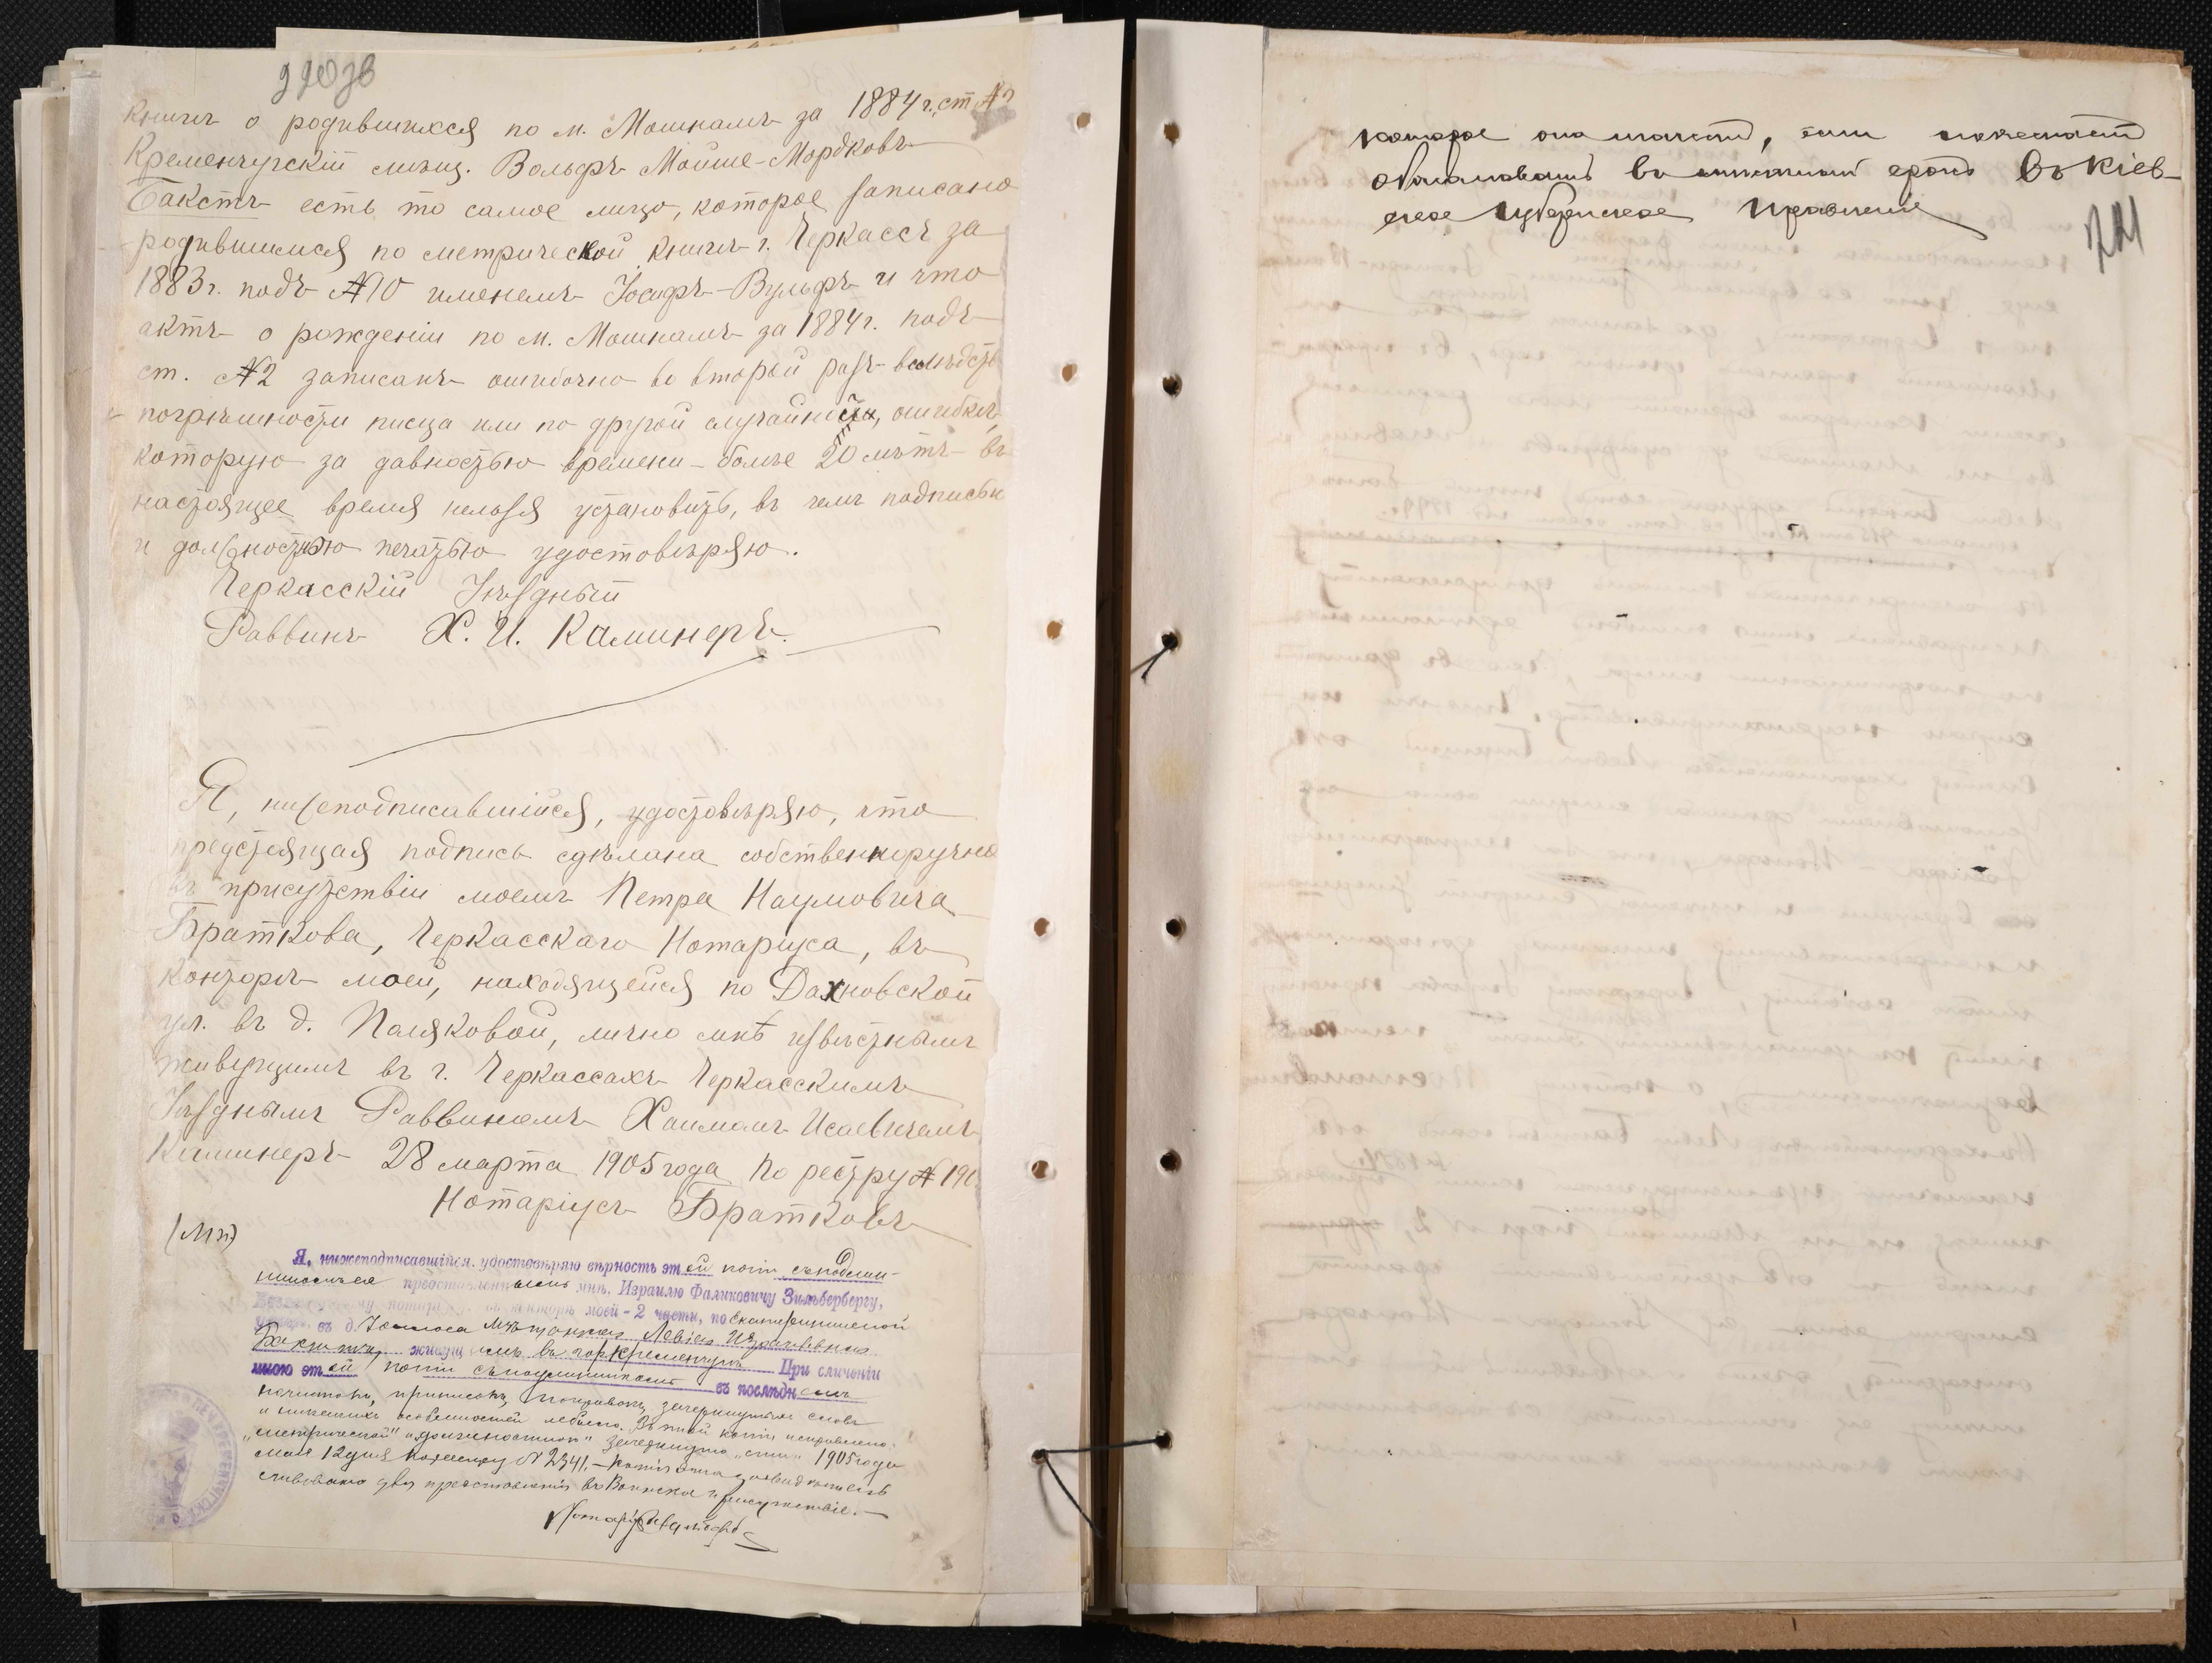 книгѣ о родившихся по м. Мошнамъ за 1884 г. ст. №2
Кременчугскій мѣщ. Вольфъ Мойше-Мордковъ
Бакстъ есть то самое лицо, которое записано
родившимся по метрической книгѣ г. Черкассъ за
1883 г. подъ №10 именемъ Іосифъ-Вульфъ и что
актъ о рожденіи по м. Мошнамъ за 1884 г. подъ
ст. №2 записанъ ошибочно во второй разъ вслѣдств
погрѣшности писца или по другой случайности, ошибкѣ,
которую за давностью времени болѣе 20 лѣтъ въ
настоящее время нельзя установить, въ чемъ подписью
и должностною печатью удостовѣряю.
Черкасскій Уѣздный
Раввинъ Х. И. Каминеръ.
Я, нижеподписавшійся, удостовѣряю, что
предстоящая подпись сдѣлана собственноручно
въ присутствіи моемъ Петра Наумовича
Браткова, Черкасскаго Нотаріуса, въ
конторѣ моей, находящейся по Дахновской
ул. въ д. Поляковой, лично мнѣ извѣстнымъ
живущимъ въ г. Черкассахъ Черкасскимъ
Уѣзднымъ Раввиномъ Хаимомъ Исаевичемъ
Каминеръ 28 марта 1905 года По рестру № 190
Нотаріусъ Братковъ
(М п)
Я, нижеподписавшійся, удостовѣряю вѣрность этой копіи съ подлин-
никомъ ея представленнымъ мнѣ, Израилю Фаликовичу Зильбербергу,
нотаріусу, въ конторѣ моей - 2 части, по Екатерининской
въ д. мѣщанкою Левіею Израилевною
Бакстъ, живущ въ гор Кременчугѣ При сличеніи
мною этой копіи съ подлинникомъ въ послѣднемъ
почистокъ, приписокъ, поправокъ, зачеркнутыхъ словъ
и никакихъ особенностей не было. Въ этой копіи исправлено:
„метрической" и „должностною" зачеркнуто 1905 года
мая 12 дня По реестру № 2341. – Копія эта засвидѣтель
ствована для представленія въ Воинское присутствіе. –
Нотаріусъ
которое она желаетъ, если пожелаетъ
обжаловать въ срокъ въ Кіев-
ское Губернское Правленіе
721